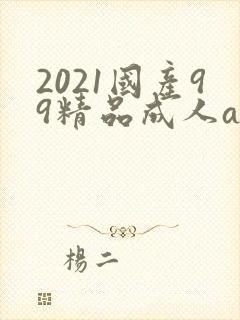 2021國產9
9精品成人a
楊二